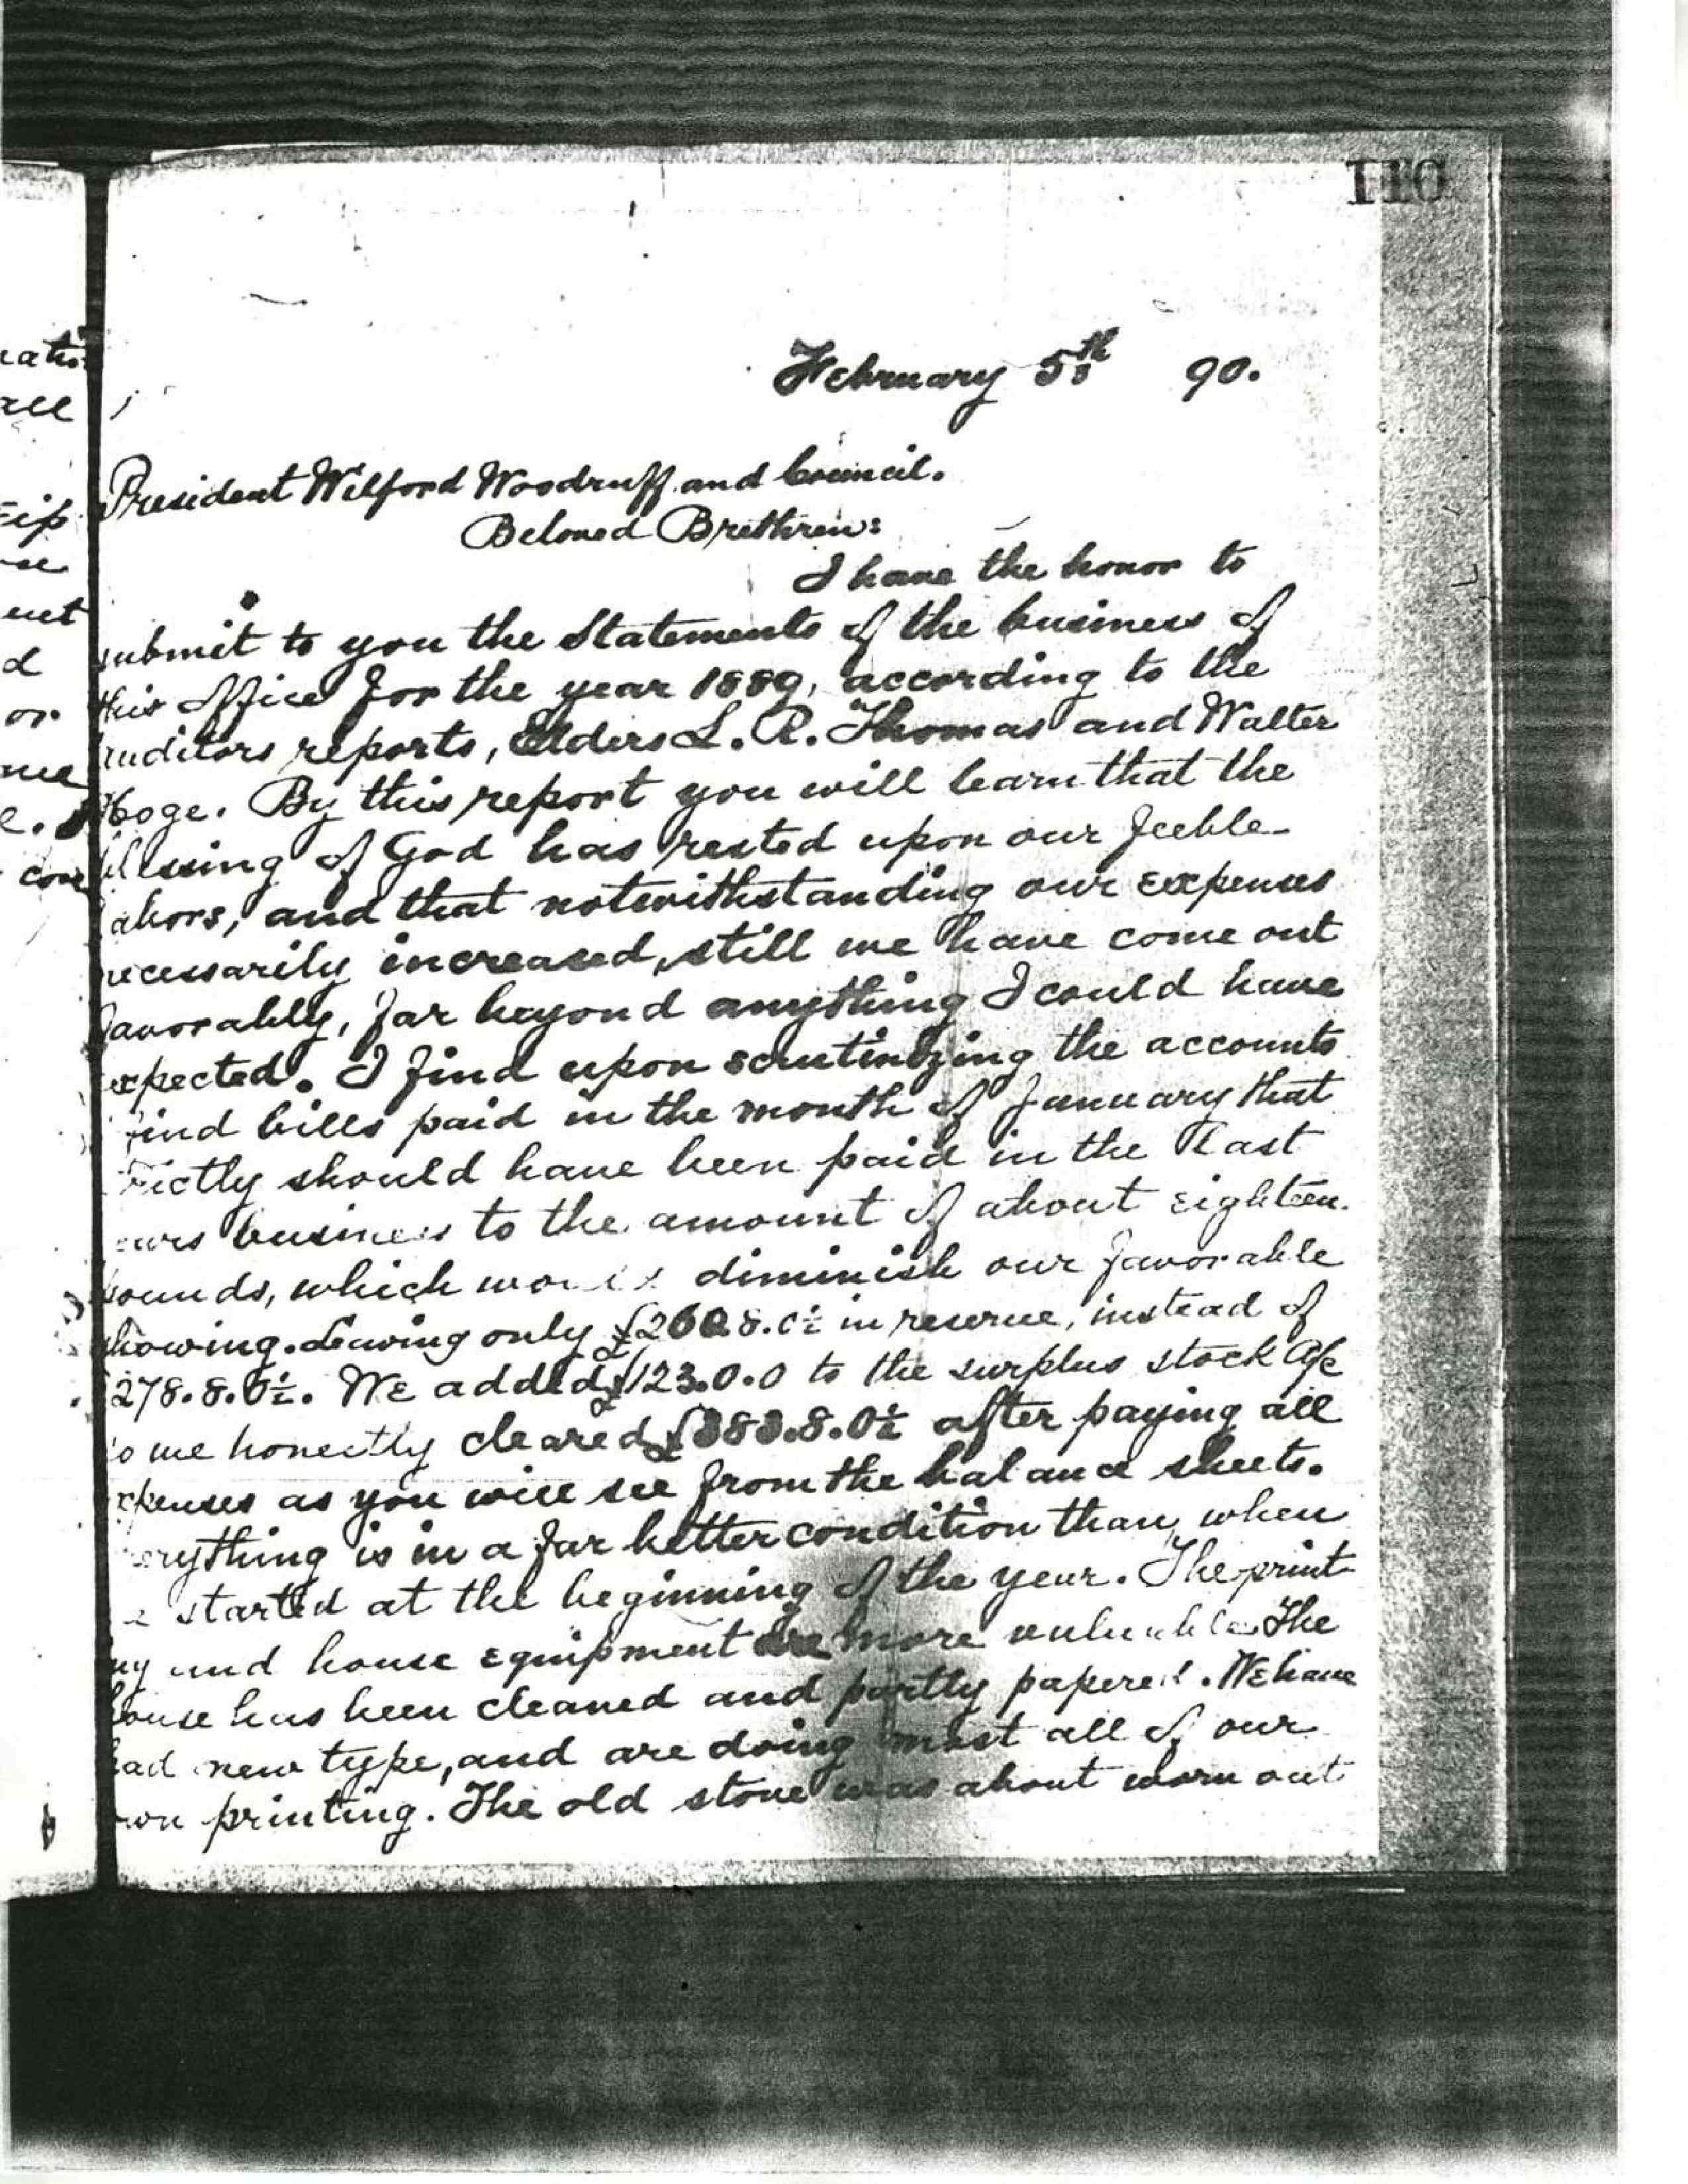 110
February 5th 90.
President Wilford Woodruff and Council.
Beloved Brethren:
I have the honor to
submit to you the Statements of the business of
this office for the year 1889, according to the
auditors reports, Elders L. R. Thomas and Walter
Hoge. By this report you will learn that the
blessing of God has rested upon our feeble
labors, and that notwithstanding our expenses
necessarily increased, still we have come out
favorably, far beyond anything I could have
expected. I find upon scrutinizing the accounts
find bills paid in the month of January that
rictly should have been paid in the last
ears business to the amount of about eighteen
pounds, which would diminish our favorable
showing. Leaving only £260.8.0½ in reserve, instead of
278.8.0½. We added £123.0.0 to the surplus stock a/c
so we honestly cleared £383.8.0½ after paying all
xpenses as you will see from the balance sheets.
erything is in a far better condition than when
e started at the beginning of the year. The print
ng and house equipment are more valuable. The
house has been cleaned and partly papered. We have
had new type, and are doing most all of our
own printing. The old stove was about worn out